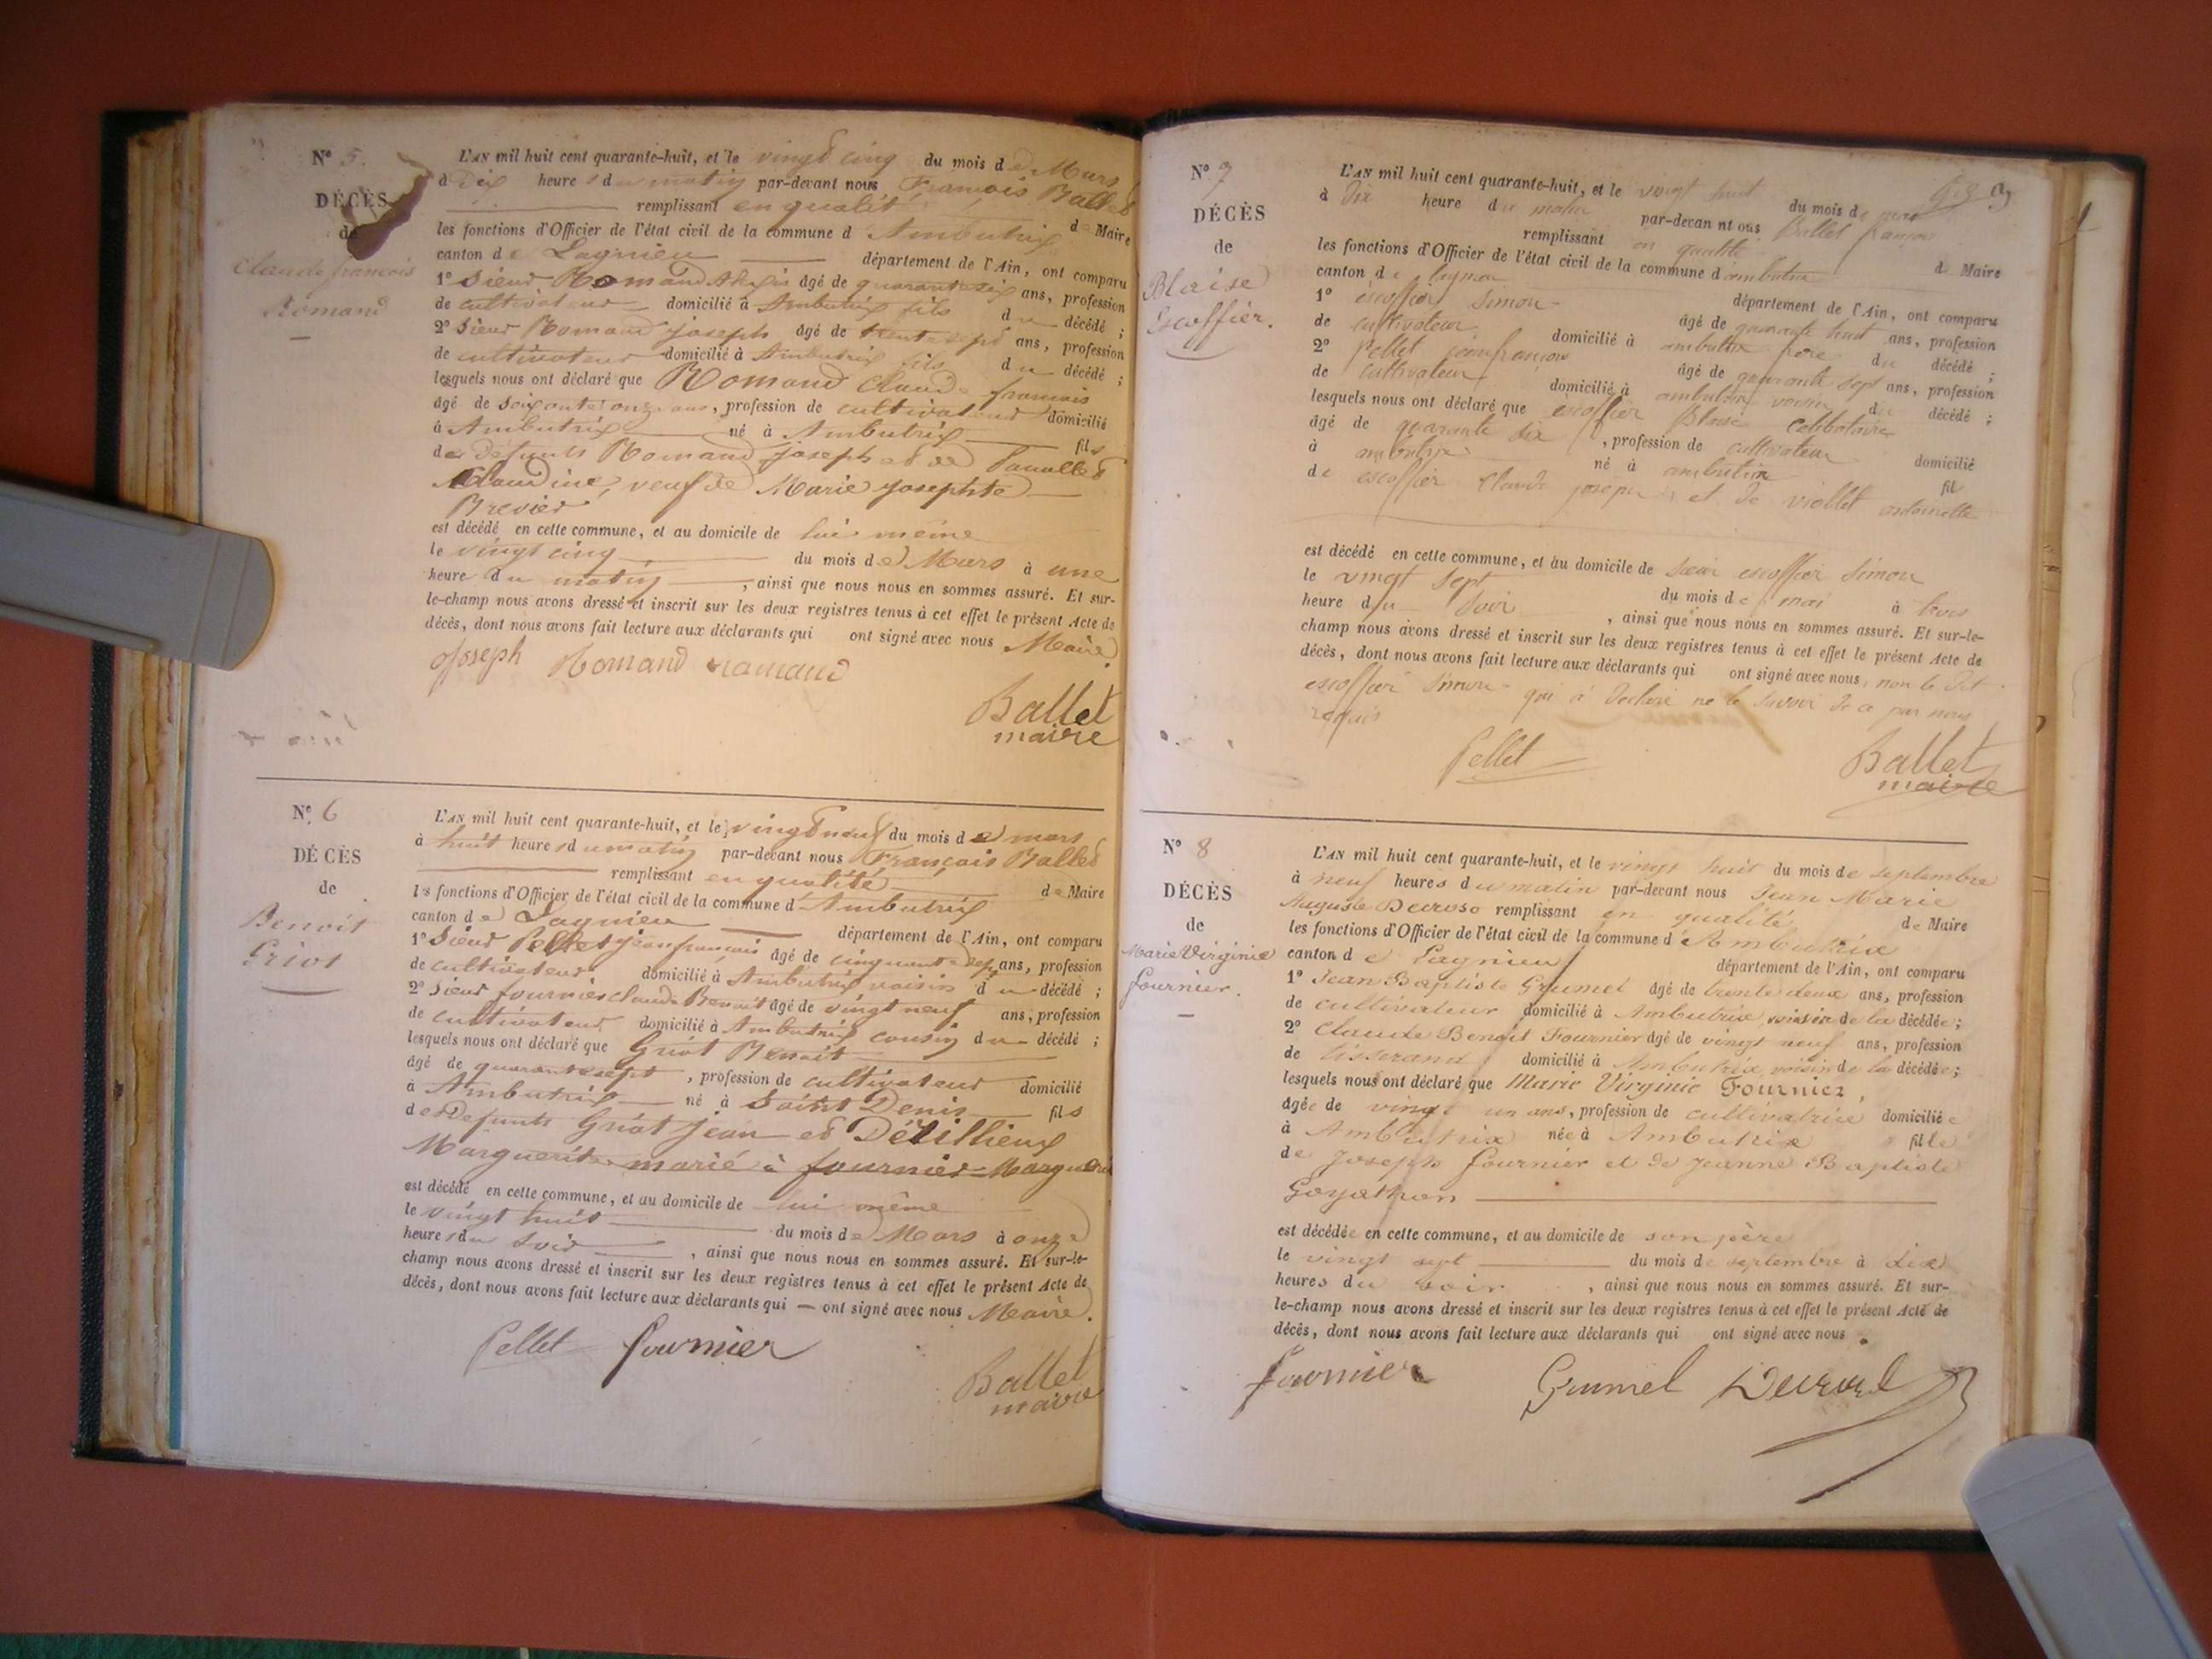 N° 5.
DÉCÈS
de
Claude françois
Romand
L'AN mil huit cent quarante-huit, et le vingt cinq du mois de Mars
à Dix heures du matin par-devant nous François Ballet
remplissant en qualité de Maire
les fonctions d'Officier de l'état civil de la commune d'Ambutrix
canton de Lagnieu département de l'Ain, ont comparu
1° Sieur Romand âgé de quarante six ans, profession
de cultivateur domicilié à Ambutrix fils du décédé ;
2° Sieur Romand joseph âgé de trente sept ans, profession
de cultivateur domicilié à Ambutrix fils du décédé ;
lesquels nous ont déclaré que Romand Claude françois
âgé de soixante onze ans, profession de cultivateur domicilié
à Ambutrix né à Ambutrix fils
des défunts Romand joseph et de
Claudine, veuf de Marie josephte
Brevier
est décédé en cette commune, et au domicile de lui même
le vingt cinq du mois de Mars à une
heure du matin, ainsi que nous nous en sommes assuré. Et sur-
le-champ nous avons dressé et inscrit sur les deux registres tenus à cet effet le présent Acte de
décès, dont nous avons fait lecture aux déclarants qui ont signé avec nous Maire.
joseph Romand romand
Ballet
maire
N° 6
DÉCÈS
de
Benoit
Griot
L'AN mil huit cent quarante-huit, et le vingt neuf du mois de mars
à huit heures du matin par-devant nous François Ballet
remplissant en qualité de Maire
les fonctions d'Officier de l'état civil de la commune d'Ambutrix
canton de Lagnieu département de l'Ain, ont comparu
1° Sieur Pellet jean françois âgé de cinquante sept ans, profession
de cultivateur domicilié à Ambutrix voisin du décédé ;
2° Sieur fournier claude Benoit âgé de vingt neuf ans, profession
de cultivateur domicilié à Ambutrix cousin du décédé ;
lesquels nous ont déclaré que Griot Benoit
âgé de quarante sept, profession de cultivateur domicilié
à Ambutrix né à Saint Denis fils
des défunts Griot jean et Détillieux
Marguerite marié à fournier Marguerite
est décédé en cette commune, et au domicile de lui même
le vingt huit du mois de Mars à onze
heures du soir, ainsi que nous nous en sommes assuré. Et sur-le-
champ nous avons dressé et inscrit sur les deux registres tenus à cet effet le présent Acte de
décès, dont nous avons fait lecture aux déclarants qui ont signé avec nous Maire.
Pellet fournier
Ballet
maire
N° 7
DÉCÈS
de
Blaise
Escoffier.
L'AN mil huit cent quarante-huit, et le vingt huit du mois de mai
à Dix heure du matin par-devan nt ous Ballet françois
remplissant en qualité de Maire
les fonctions d'Officier de l'état civil de la commune d'ambutrix
canton de lagnieu département de l'Ain, ont comparu
1° escoffier Simon âgé de quarante huit ans, profession
de cultivateur domicilié à ambutrix frere du décédé ;
2° Pellet jean françois âgé de quarante sept ans, profession
de cultivateur domicilié à ambutrix voisin du décédé ;
lesquels nous ont déclaré que escoffier Blaise Celibataire
âgé de quarante six, profession de cultivateur domicilié
à ambutrix né à ambutrix fil
de escoffier Claude joseph et de viollet antoinette
est décédé en cette commune, et au domicile de Sieur escoffier Simon
le vingt Sept du mois de mai à trois
heure du Soir, ainsi que nous nous en sommes assuré. Et sur-le-
champ nous avons dressé et inscrit sur les deux registres tenus à cet effet le présent Acte de
décès, dont nous avons fait lecture aux déclarants qui ont signé avec nous, non le dit
escoffier Simon qui a Declaré ne le Savoir de ce par nous
requis
Pellet
Ballet
maire
N° 8
DÉCÈS
de
Marie Virginie
fournier.
L'AN mil huit cent quarante-huit, et le vingt huit du mois de septembre
à neuf heures du matin par-devant nous Jean Marie
Auguste Decroso remplissant en qualité de Maire
les fonctions d'Officier de l'état civil de la commune d'Ambutrix
canton de Lagnieu département de l'Ain, ont comparu
1° Jean Baptiste Grumel âgé de trente deux ans, profession
de cultivateur domicilié à Ambutrix, voisin de la décédée ;
2° Claude Benoit Fournier âgé de vingt neuf ans, profession
de tisserand domicilié à Ambutrix, voisin de la décédée ;
lesquels nous ont déclaré que Marie Virginie Fournier,
âgée de vingt un ans, profession de cultivatrice domiciliée
à Ambutrix née à Ambutrix fille
de Joseph fournier et de Jeanne Baptiste
Goyathon
est décédée en cette commune, et au domicile de son père
le vingt sept du mois de septembre à dix
heures du soir, ainsi que nous nous en sommes assuré. Et sur-
le-champ nous avons dressé et inscrit sur les deux registres tenus à cet effet le présent Acte de
décès, dont nous avons fait lecture aux déclarants qui ont signé avec nous.
fournier Grumel